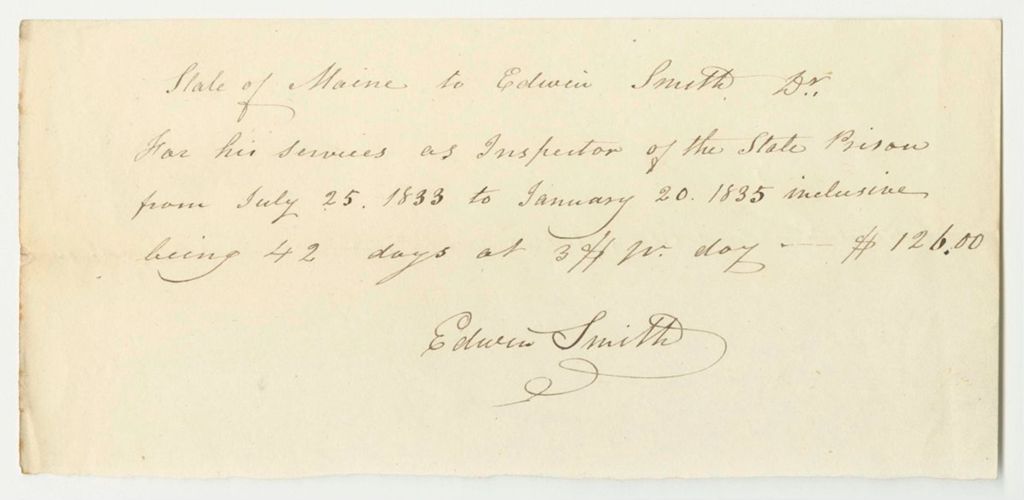 State of Maine to Edwin Smith Dr.
For his services as Inspector of the State Prison
from July 25. 1833 to January 20. 1835 inclusive
being 42 days at 3$ pr. day — $126.00
Edwin Smith